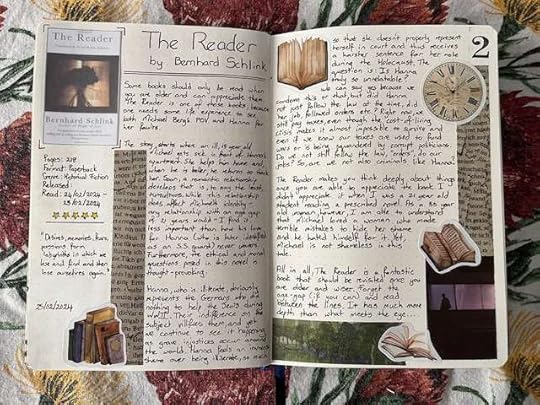 The Reader
Bernhard Schlink
The Reader
by Bernhard Schlink
Some books should only be read when
you are older and can appreciate them.
The Reader is one of these books because
one needs some life experience to see
both Michael Berg's POV and Hanna for
her faults.
The story starts when an ill, 15 year old
Michael gets sick in front of Hanna's
apartment. She helps him home and,
when he is better, he returns to thank
her. Soon, a romantic relationship
develops that is, to say the least,
tempestuous. While this relationship
does affect Michael's identity in
any relationship with an age gap
of years would, I find it
less important than how his love
for Hanna (who is later
as an S.S guard) never
Furthermore, the ethical and moral
questions posed in this novel is
thought-provoking.
Hanna, who is illiterate, obviously
represents the Germans who did
nothing to help the Jews during
WWII. Their indifference on the
subject vilifies them, and yet
we continue to see it happening
as grave injustices occur around
the world. Hanna feels an immense
shame over being illiterate, so much
Pages: 218
Format: Paperback
Genre: Historical Fiction
Released
Read: 24/02/2024 -
25/02/2024
"Desires, memories, fears,
passions form
labyrinths in which we
lose and find and then
lose ourselves again."
25/02/2024
so that she doesn't properly represent
herself in court and thus receives
a harsher sentence for her role
during the Holocaust. The
question is: Is Hanna
truly so unrelatable?
2
We can say yes because we
condemn this or that, but did Hanna
not just follow the law at the time, did
her job, followed orders etc? Right now, we
still pay taxes, even though the cost-of-living
crisis makes it almost impossible to survive and
even if we know our taxes are used to fund
wars or is being squandered by corrupt politicians.
Do we not still follow the law, orders, do our
jobs? So, are we all also criminals like Hanna?
The Reader makes you think deeply about things
once you are able to appreciate the book. I
didn't appreciate it when I was a 21 year old
student reading a prescribed novel. As a 35 year
old woman however, I am able to understand
that Michael loved a woman who made
terrible mistakes to hide her shame
and he hated himself for it. Yet,
Michael is not shameless in this
tale.
All in all, The Reader is a fantastic
book that should be revisited once you
are older and wiser. Forget the
age-gap (if you can) and read
between the lines. It has much more
depth than what meets the eye.